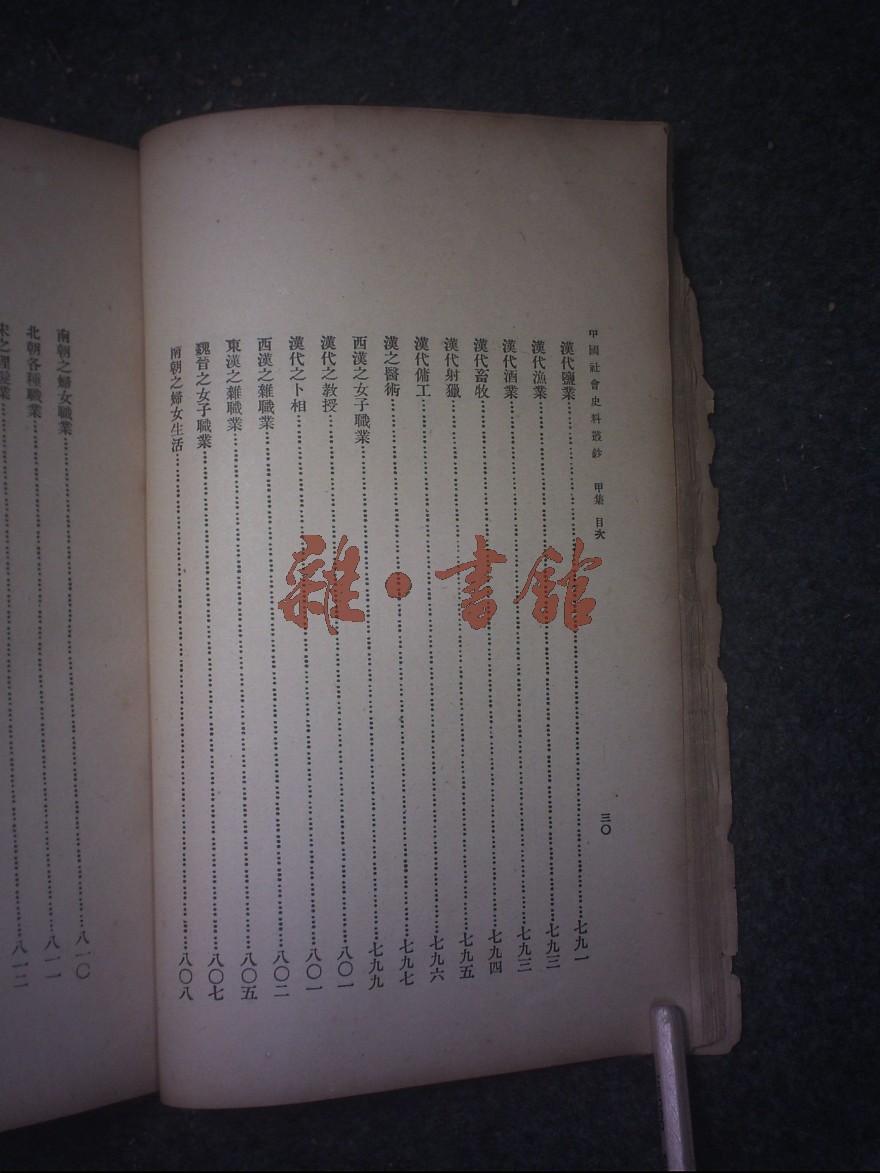 中國社會史料叢鈔 甲集 目次 三〇
漢代鹽業……七九一
漢代漁業……七九三
漢代酒業……七九三
漢代畜牧……七九四
漢代射獵……七九五
漢代傭工……七九六
漢之醫術……七九七
西漢之女子職業……七九九
漢代之教授……八〇一
漢代之卜相……八〇一
西漢之雜職業……八〇二
東漢之雜職業……八〇五
魏晉之女子職業……八〇七
南朝之婦女生活……八〇八
南朝之婦女職業……八一〇
北朝各種職業……八一一
之理髮業……八一二
雜·書館